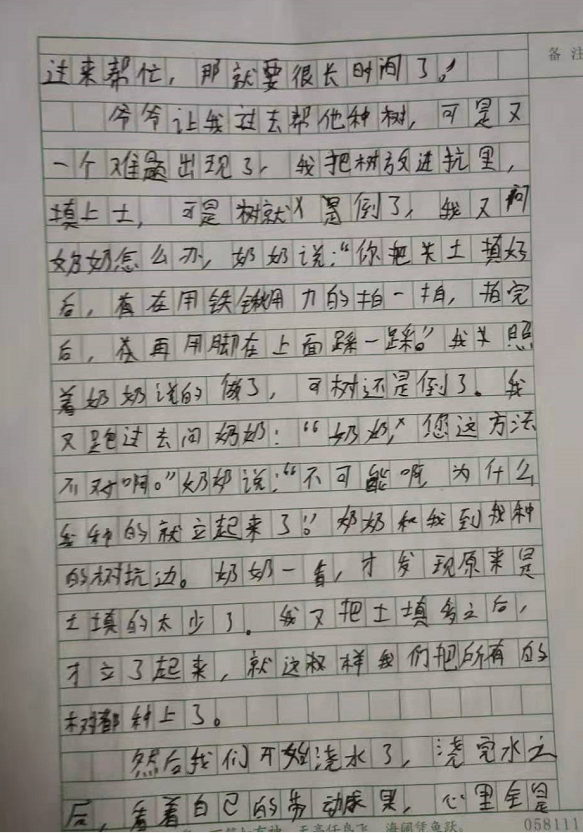 备注
过来帮忙，那就要很长时间了！
爷爷让我过去帮他种树，可是又
一个难题出现了，我把树放进抗里，
填上土，可是树就是倒了，我又问
奶奶怎么办，奶奶说：“你把先土填好
后，在用铁锹用力的拍一拍，拍完
后，再用脚在上面踩一踩。”我照
着奶奶说的做了，可树还是倒了。我
又跑过去问奶奶：“奶奶，您这方法
不对啊。”奶奶说：“不可能呀为什么
我种的就立起来了”奶奶和我到我种
的树抗边。奶奶一看，才发现原来是
土填的太少了。我又把土填多之后，
才立了起来，就这样我们把所有的
树都种上了。
然后我们开始浇水了，浇完水之
后，看着自己的劳动成果，心里全是
天高任鸟飞，海阔凭鱼跃。
058111